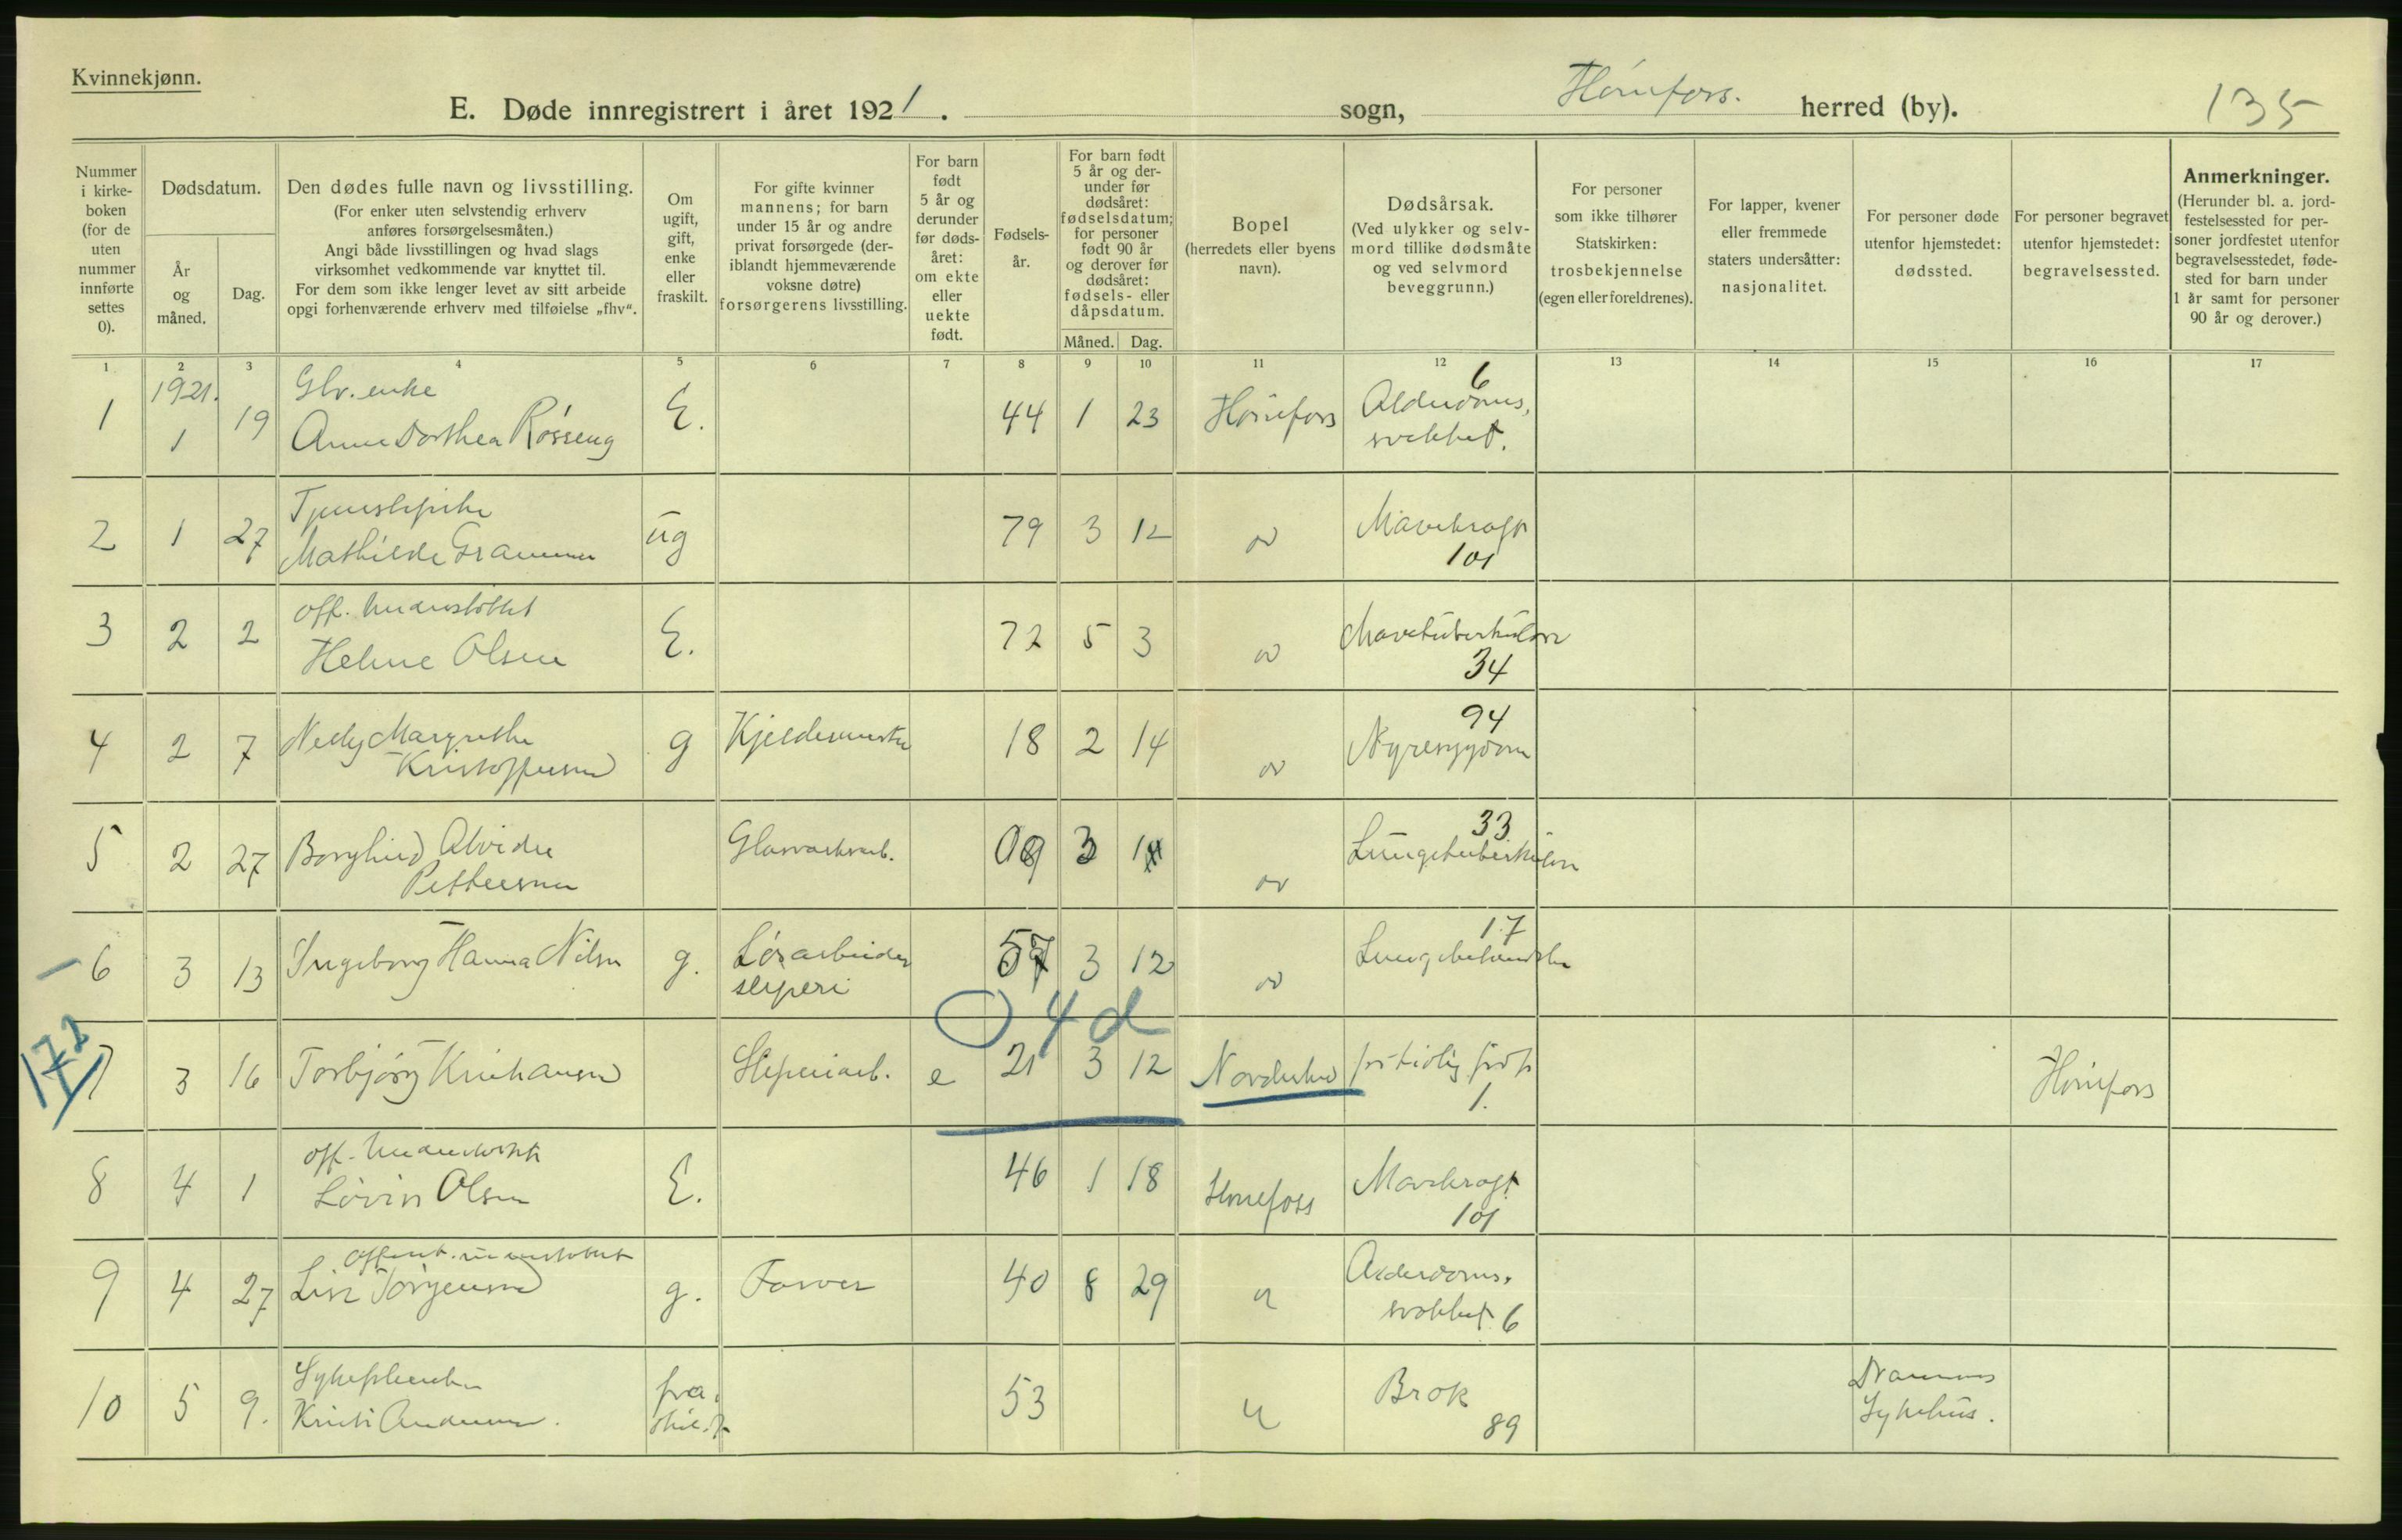 Kvinnekjønn.
E. Døde innregistrert i året 1921. sogn, Hønefoss. herred (by). 135
Nummer i kirkeboken (for de uten nummer innførte settes 0).
Dødsdatum.
År og måned.
Dag.
Den dødes fulle navn og livsstilling.
(For enker uten selvstendig erhverv anføres forsørgelsesmåten.)
Angi både livsstillingen og hvad slags virksomhet vedkommende var knyttet til.
For dem som ikke lenger levet av sitt arbeide opgi forhenværende erhverv med tilføielse „fhv“.
Om ugift, gift, enke eller fraskilt.
For gifte kvinner mannens; for barn under 15 år og andre privat forsørgede (deriblandt hjemmeværende voksne døtre) forsørgerens livsstilling.
For barn født 5 år og derunder før dødsåret: om ekte eller uekte født.
Fødselsår.
For barn født 5 år og derunder før dødsåret: fødselsdatum; for personer født 90 år og derover før dødsåret: fødsels- eller dåpsdatum.
Måned.
Dag.
Bopel
(herredets eller byens navn).
Dødsårsak.
(Ved ulykker og selvmord tillike dødsmåte og ved selvmord beveggrunn.)
For personer som ikke tilhører Statskirken: trosbekjennelse (egen eller foreldrenes).
For lapper, kvener eller fremmede staters undersåtter: nasjonalitet.
For personer døde utenfor hjemstedet: dødssted.
For personer begravet utenfor hjemstedet: begravelsessted.
Anmerkninger.
(Herunder bl. a. jordfestelsessted for personer jordfestet utenfor begravelsesstedet, fødested for barn under 1 år samt for personer 90 år og derover.)
1 2 3 4 5 6 7 8 9 10 11 12 13 14 15 16 17
1 1921. 1 19 enke Anne Dorthea Røsseng E. 44 1 23 Hønefoss Alderdoms, svekket. 6
2 1 27 Tjenestepike Mathilde ug 79 3 12 Mavekraft 101
3 2 2 off. understøttet Helene Olsen E. 72 5 3 Mavetuberkulose 34
4 2 7 Nelly Margrethe Kristoffersen g 18 2 14 94 Nyresygdom
5 2 27 Borghild Alvide Pettersen Glasverkarb. 09 3 33 Lungetuberkulose
6 3 13 Ingeborg Hanna Nilsen g. Løsarbeider sliperi 57 3 12 17 Lungebetendelse
172
0 4 d
7 3 16 Torbjørg Sliperiarb. e 21 3 12 Norderhov for tidlig født 1. Hønefoss
8 4 1 off. understøttet Lovise Olsen E. 46 1 18 Hønefoss Mavekraft 101
9 4 27 offent. understøttet Lise Jørgensen g. Farver 40 8 29 Alderdoms, svekket 6
10 5 9. Sykepleierske Kristi Andersen. fraskilt 53 Brok 89 Drammens Sykehus.